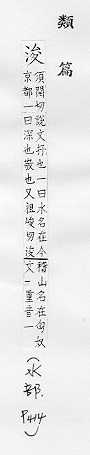 類篇
浚
須閏切說文抒也一曰水名在今
京都一曰深也敬也又祖峻切浚
稽山名在匈奴
文一重音一
(水部, P414)